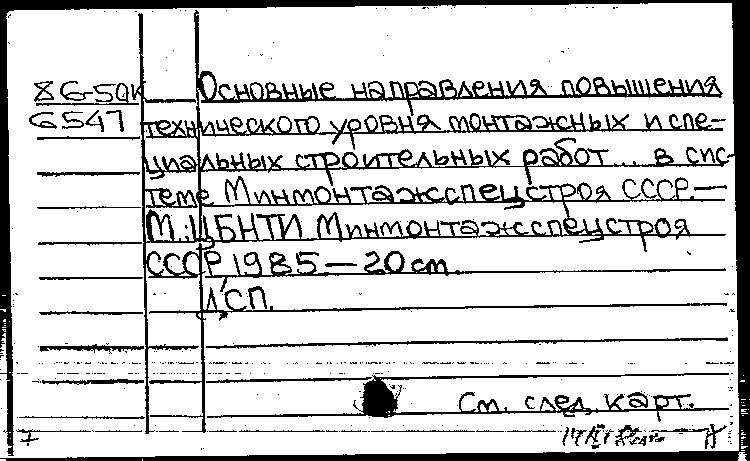 86-5QK Основные направления повышения
6547 технического уровня монтажных и спе-
циальных строительных работ... в сис-
теме Минмонтажспецстроя СССР.—
М.: ЦБНТИ Минмонтажспецстроя
СССР, 1985 — 20 см.
ЛСП.
См. след. карт.
7